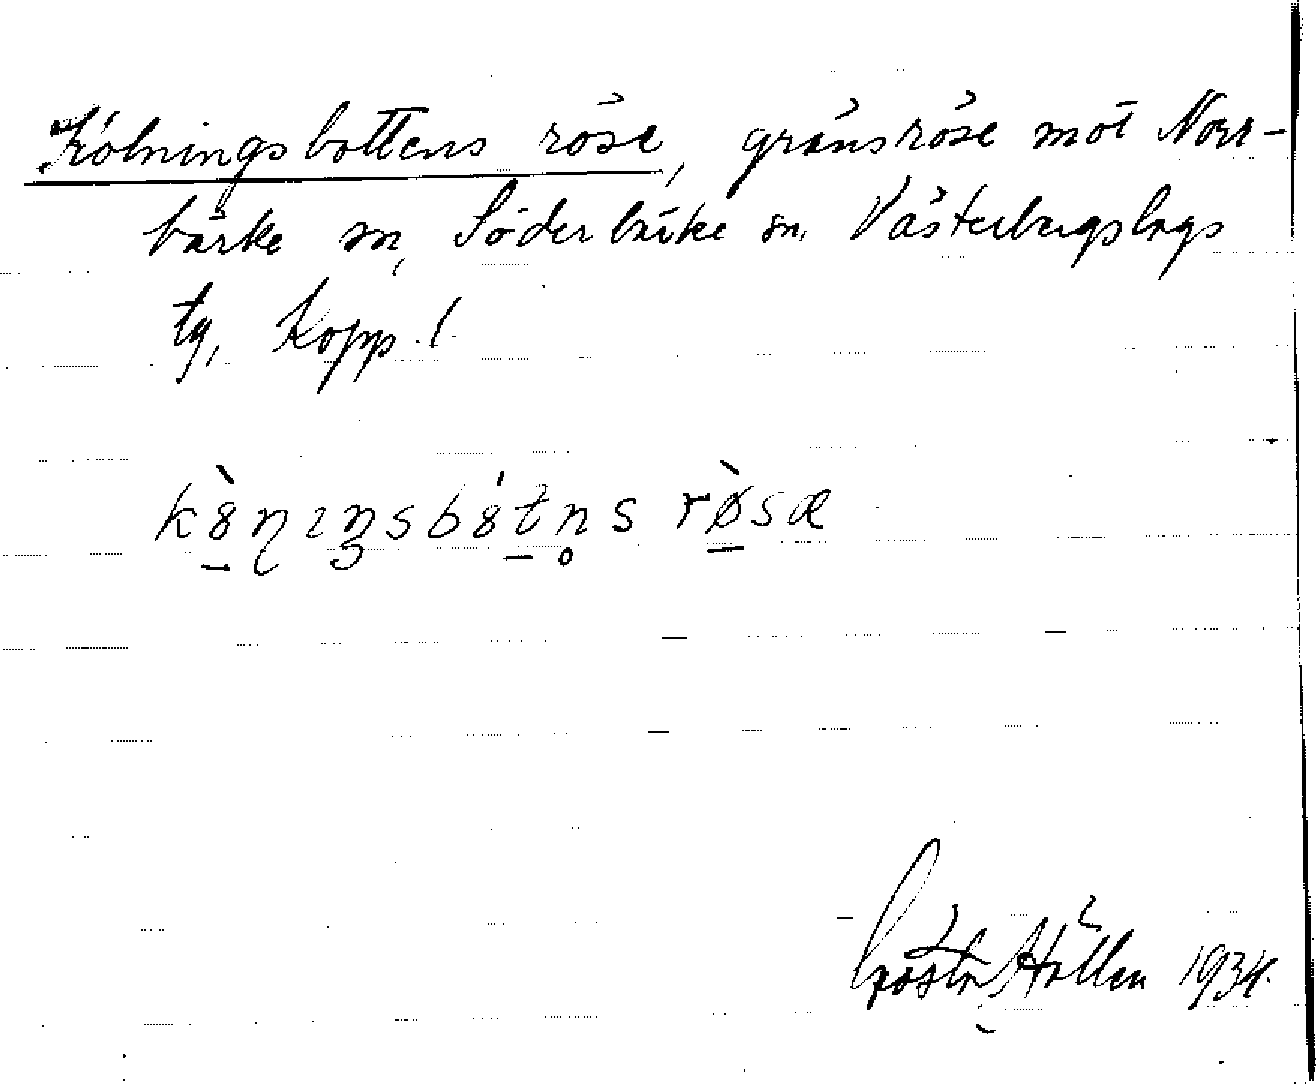 Kolningsbottens röse, gränsröse mot Norr-
bärke sn, Söderbärke sn, Västerbergslags
tg, Kopp. l
Gösta Hållen 1934.